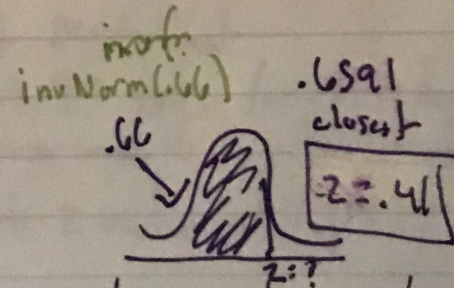 invNorm(.66)
.6591
closest
.66
z = .41
z = ?